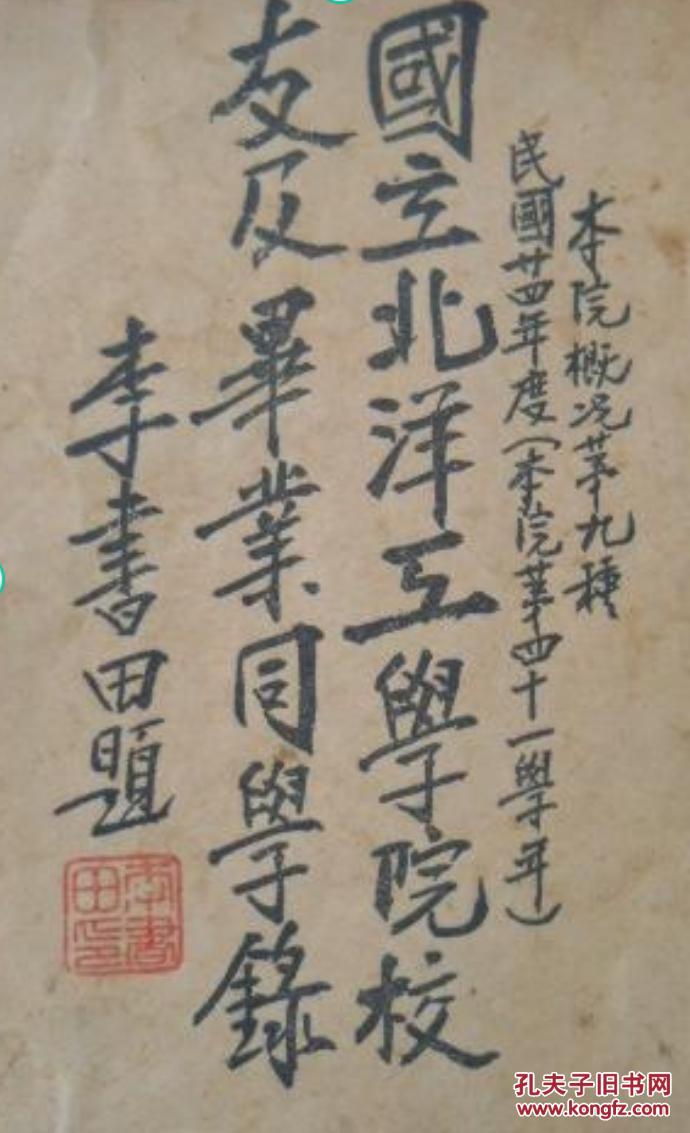 本院概况苐九種
民國廿四年度(本院苐四十一學年)
國立北洋工學院校
友及畢業同學錄
李書田題
李書田印
孔夫子旧书网
www.kongfz.com